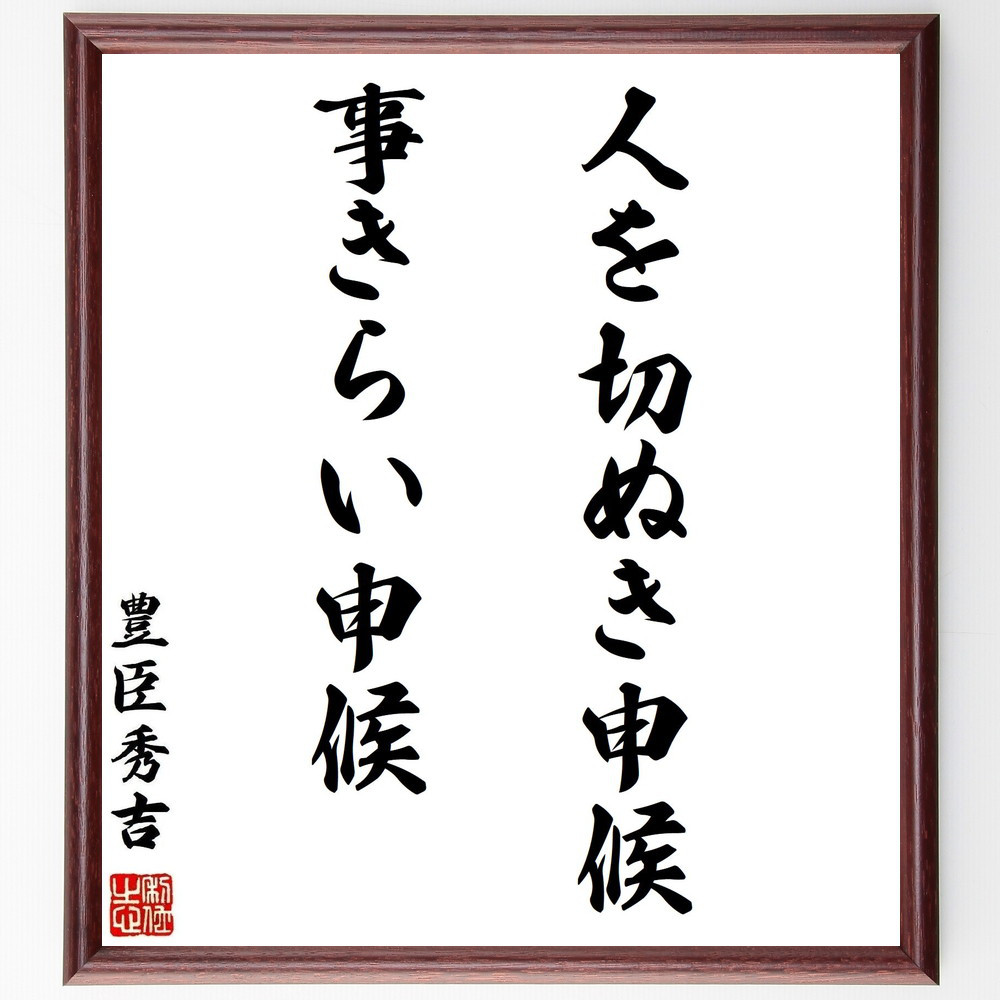 人を切ぬき申候
事きらい申候
豊臣秀吉